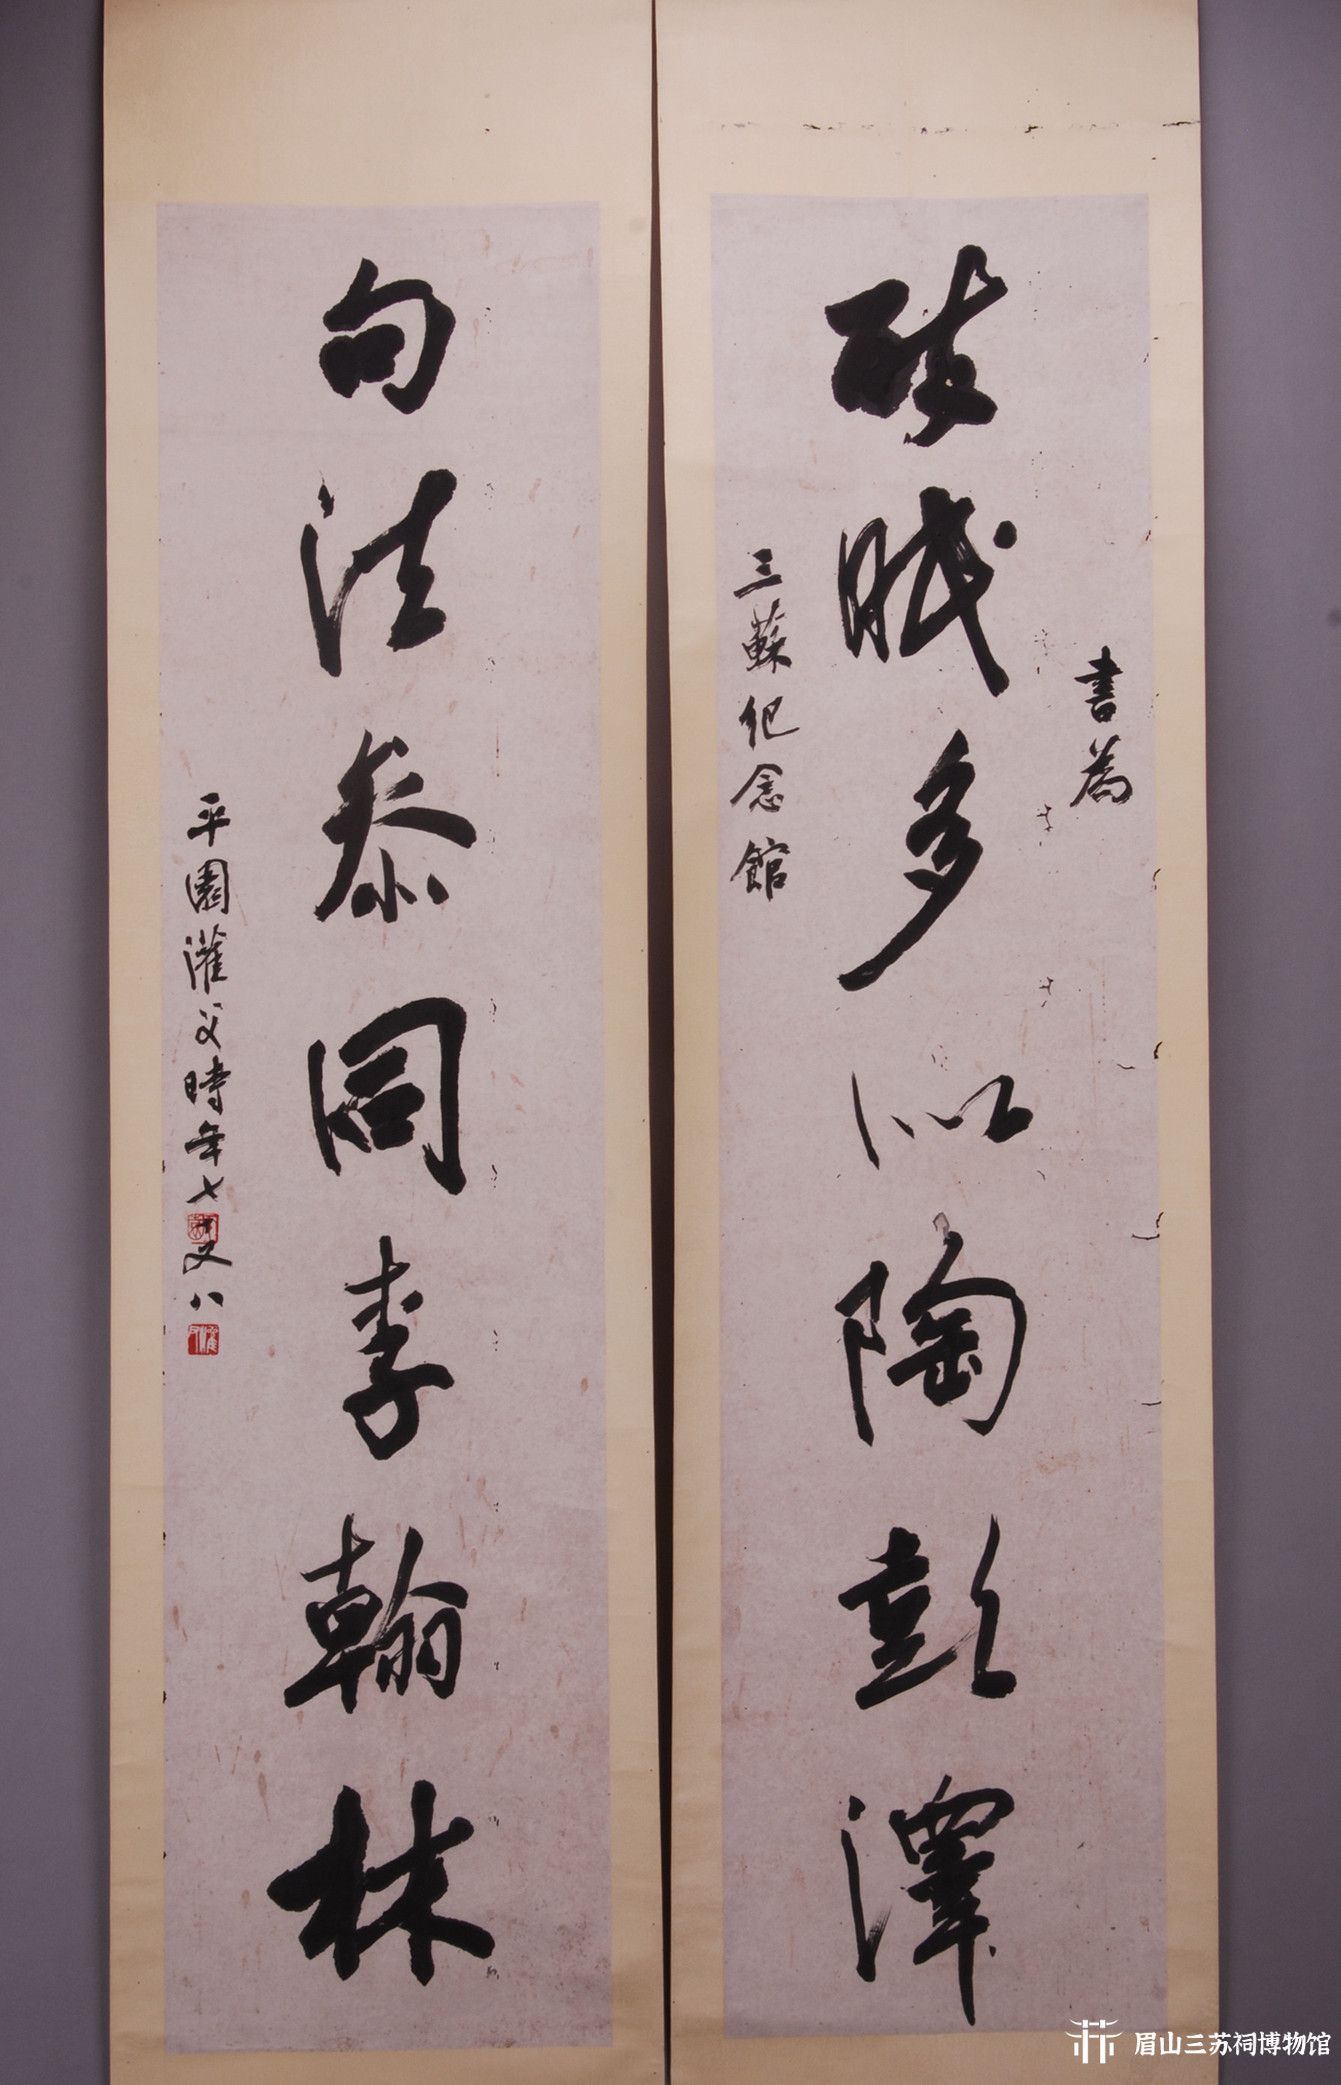 書為
醉眠多似陶彭澤
三蘇纪念館
句法叅同李翰林
平園灌父時年七十又八
眉山三苏祠博物馆